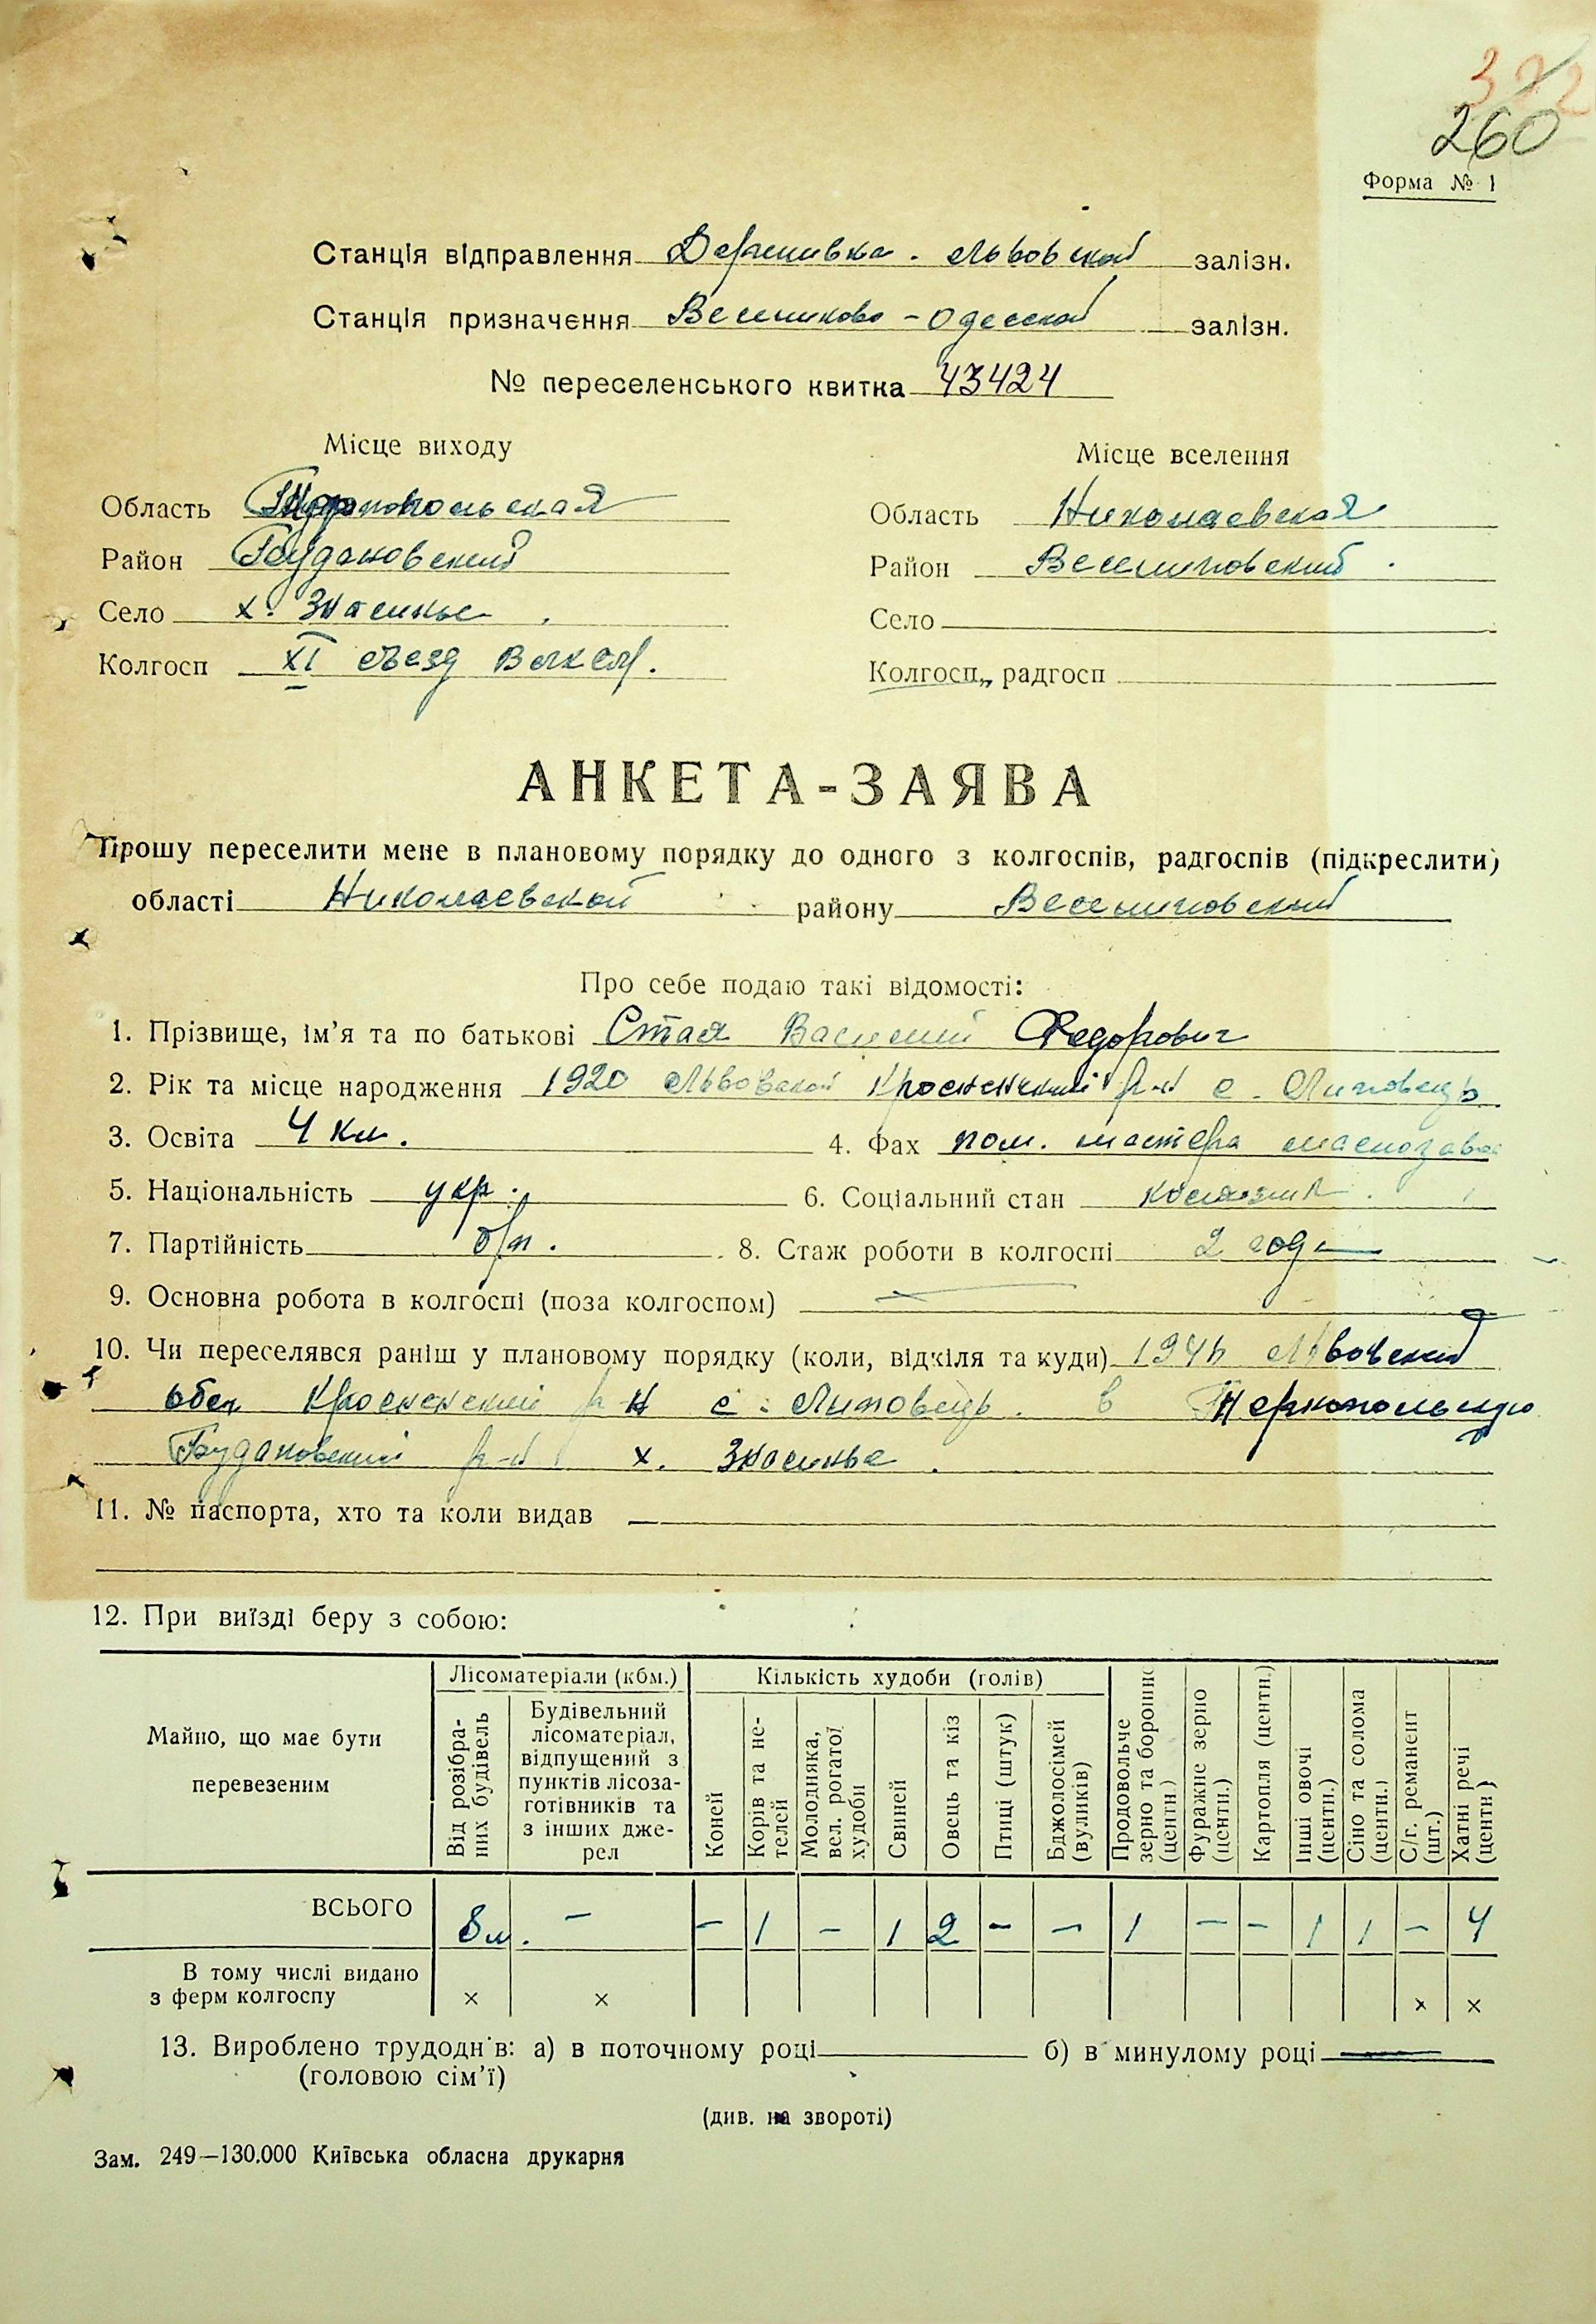 322
260
Форма № 1
Станція відправлення Деренивка. Львовской залізн.
Станція призначення Веселиново - Одесской залізн.
№ переселенського квитка 43424
Місце виходу
Місце вселення
Область Тернопольская
Область Николаевская
Район Будановский
Район Веселиновский
Село х. Знасинье
Село
Колгосп XI съезд ВЛКСМ.
Колгосп, радгосп
АНКЕТА-ЗАЯВА
Прошу переселити мене в плановому порядку до одного з колгоспів, радгоспів (підкреслити)
області Николаевской району Веселиновский
Про себе подаю такі відомості:
1. Прізвище, ім'я та по батькові Стая Василий Федорович
2. Рік та місце народження 1920 Львовской Кросненский р-н с. Липовець
3. Освіта 4 кл. 4. Фах пом. мастера маслозаво
5. Національність укр. 6. Соціальний стан колхозник
7. Партійність б/п. 8. Стаж роботи в колгоспі 2 года
9. Основна робота в колгоспі (поза колгоспом) —
10. Чи переселявся раніш у плановому порядку (коли, відкіля та куди) Львовский
обл Кросненский р-н с. Липовець в Тернопольскую
Будановский р-н х. Знасинье.
11. № паспорта, хто та коли видав
12. При виїзді беру з собою:
Майно, що має бути перевезеним
Лісоматеріали (кбм.)
Кількість худоби (голів)
Від розібраних будівель
Будівельний лісоматеріал, відпущений з пунктів лісозаготівників та з інших джерел
Коней
Корів та нетелей
Молодняка, вел. рогатої худоби
Свиней
Овець та кіз
Птиці (штук)
Бджолосімей (вуликів)
Продовольче зерно та борошно (центн.)
Фуражне зерно (центн.)
Картопля (центн.)
Інші овочі (центн.)
Сіно та солома (центн.)
С/г. реманент (шт.)
Хатні речі (центн)
ВСЬОГО 8м. – – 1 – 1 2 – – 1 – – 1 1 – 4
В тому числі видано
з ферм колгоспу × × × ×
13. Вироблено трудоднів: а) в поточному році б) в минулому році —
(головою сім'ї)
(див. на звороті)
Зам. 249—130.000 Київська обласна друкарня